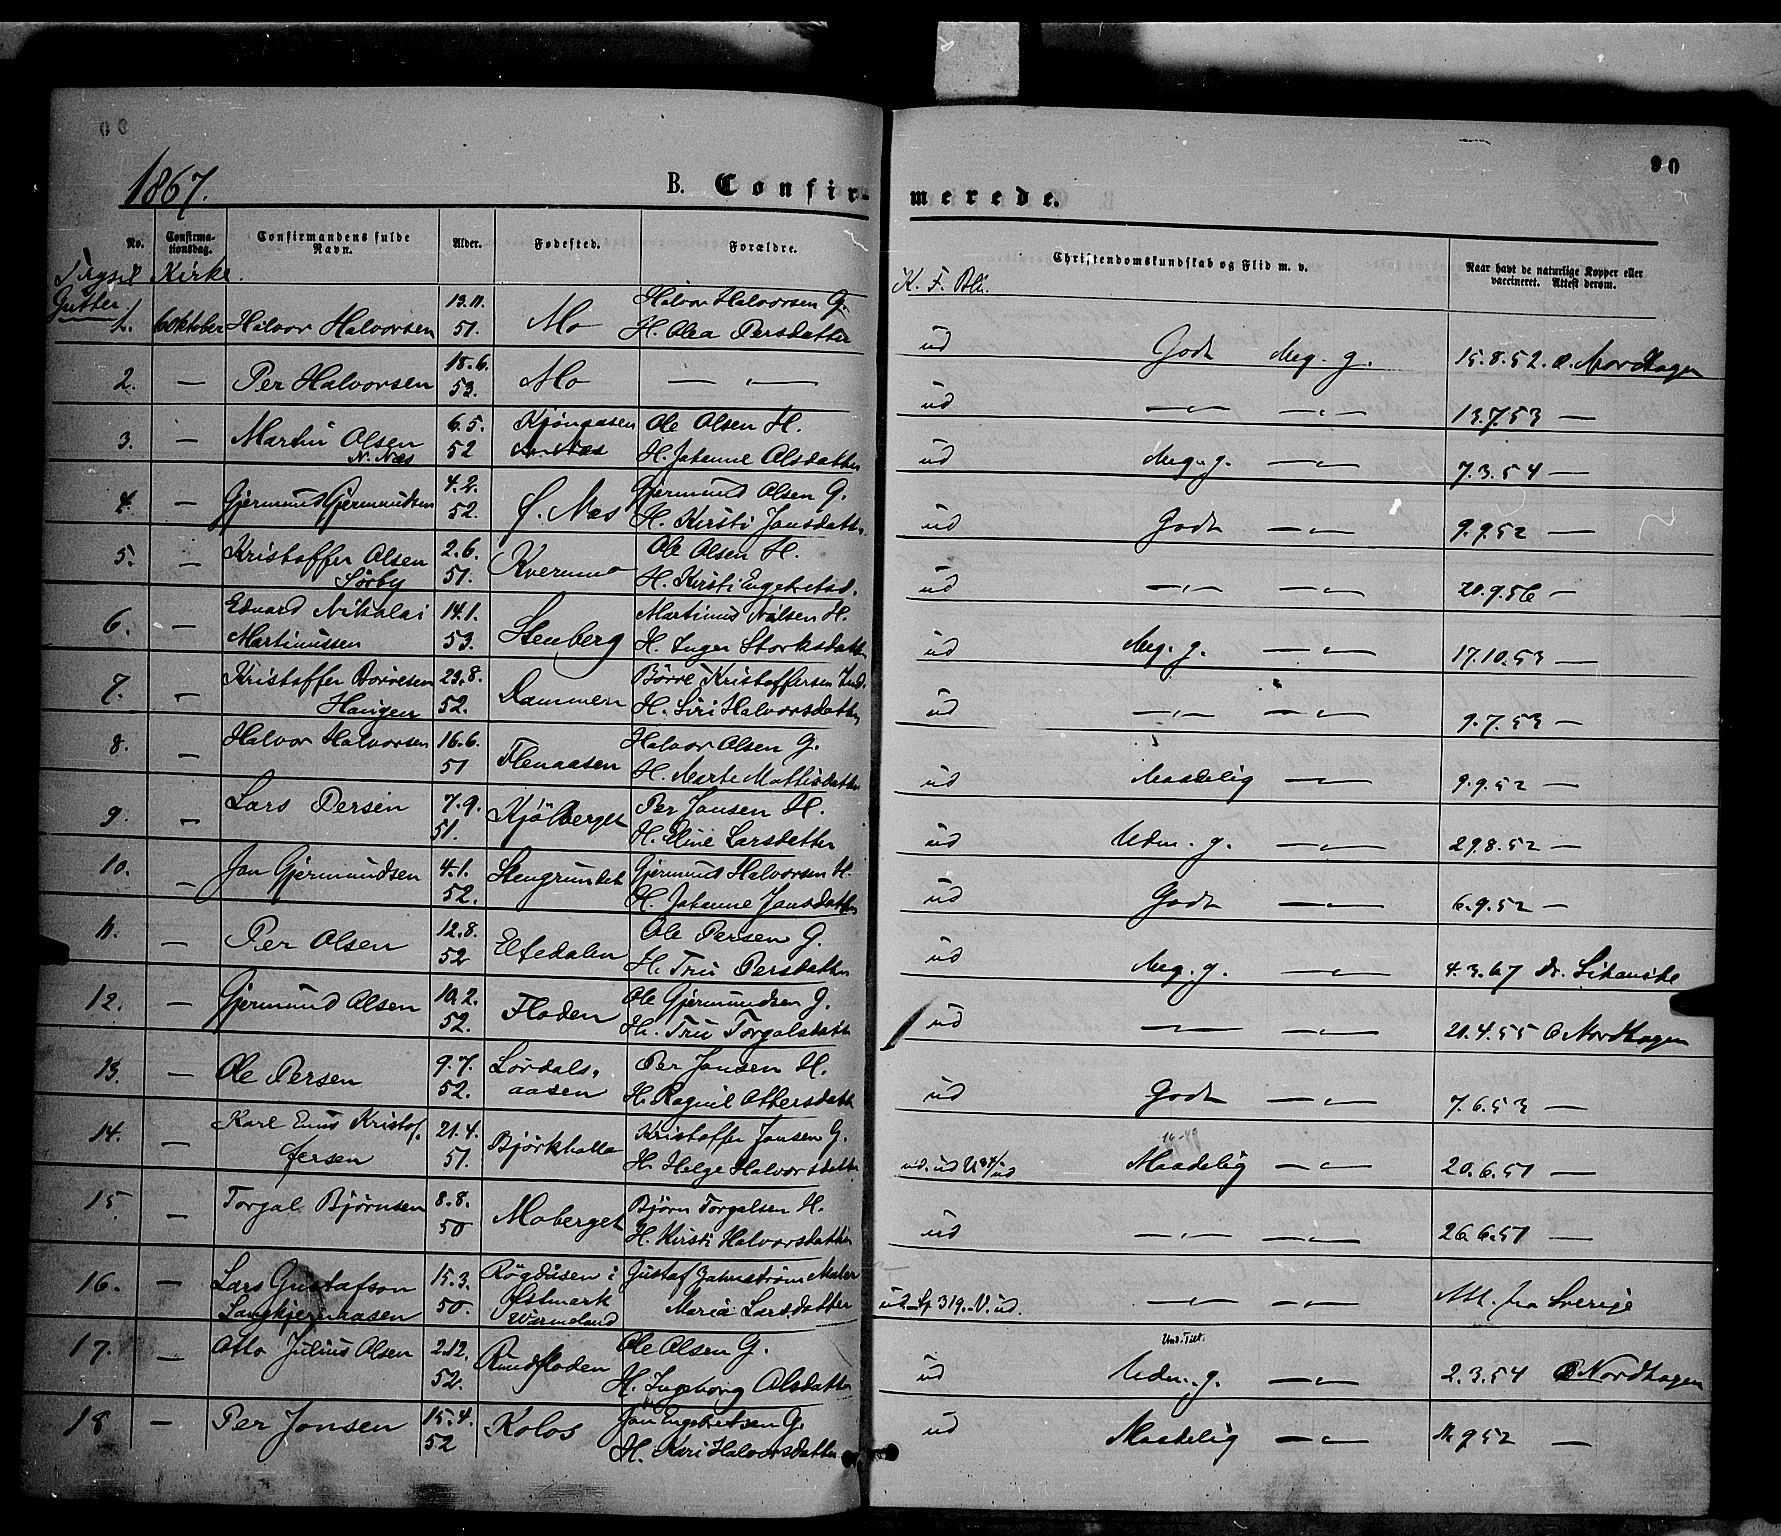 90
1867.
B. Confir-
merede.
No.
Confirma-
tionsdag.
Confirmandens fulde
Navn.
Alder.
Fødested.
Forældre.
Christendomskundskab og Flid m. v.
Naar havt de naturlige Kopper eller
vaccineret. Attest derom.
Trysil Kirke.
Gutter
K. F. Bli.
1. 6 Oktober Halvor Halvorsen 13.11. 51. Mo Halvor Halvorsen G.
H. Olea Persdatter
ud Godt Meg. g. 15.8.52. O. Nordhagen
2. — Per Halvorsen 18.6. 53. Mo — " —
ud — " — — " — 13.7.53 —
3. — Martin Olsen 6.5. Kjønaasen Ole Olsen H.
N. Næs 52 H. Johanne Olsdatter
ud Meg. g. — " — 7.3.54 —
4. — Gjermund Gjermundsen 4.2. 52. Ø. Næs Gjermund Olsen G.
H. Kirsti Jonsdatter
ud Godt — " — 9.9.52 —
5. — Kristoffer Olsen 2.6. Ole Olsen H.
Sørby 51. Kvernmo H. Kirsti Engebretsd.
ud — " — — " — 20.9.56 —
6. — Edvard Nikolai 14.1. Martinus Nilsen H.
Martinussen 53. Stenberg H. Inger Storksdatter
ud Meg. g. — " — 17.10.53 —
7. — Kristoffer Børresen 29.8. Børre Kristoffersen Ind.
Haugen 52. Dammen H. Siri Halvorsdatter
ud — " — — " — 9.7.53 —
8. — Halvor Halvorsen 16.6. 51 Flenaasen Halvor Olsen G.
H. Marte Mattisdatter
ud Maadelig — " — 9.9.52 —
9. — Lars Persen 7.9. 51. Kjølberget Per Jonsen H.
H. Eline Larsdatter
ud Udm. g. — " — 29.8.52 —
10. — Jon Gjermundsen 4.1. 52. Stengrundet Gjermund Halvorsen H.
H. Johanne Jonsdatter
ud Godt — " — 6.9.52 —
11. — Per Olsen 12.8. 52 Eltedalen Ole Persen G.
H. Tru Persdatter
ud Meg. g. — " — 4.3.67 Dr.
12. — Gjermund Olsen 10.2. 52. Floden Ole Gjermundsen G.
H. Tru Torgalsdatter
ud — " — — " — 21.4.55 O Nordhagen
13. — Ole Persen 9.7. 52. Lørdals- Per Jonsen H.
aasen H. Ragnil Ottersdatter
ud Godt — " — 7.6.53 —
14. — Karl Enus Kristof- 21.4. Kristoffer Jonsen G.
fersen 51. Bjørkholla H. Helge Halvorsdatter
ud Maadelig — " — 20.6.51 —
15 — Torgal Bjørnsen 8.8. 50 Moberget Bjørn Torgalsen H.
H. Kirsti Halvorsdatter
ud — " — — " — 26.6.51 —
16. — Lars Gustafson 15.3. 50. Røgdåsen i Gustaf Maler
Østmark Maria Larsdatter
Wärmeland
ud. Sp 319. V. ud. — " — — " — Att. fra Sverige
17. — Otto Julius Olsen 2.12. 52. Rundfloden Ole Olsen G.
H. Ingeborg Olsdatter
ud Udm. g. — " — 2.3.54 O Nordhagen
18 — Per Jonsen 15.4. 52 Kolos Jon Engebretsen G.
H. Kari Halvorsdatter
ud Maadelig — " — 9 52 —